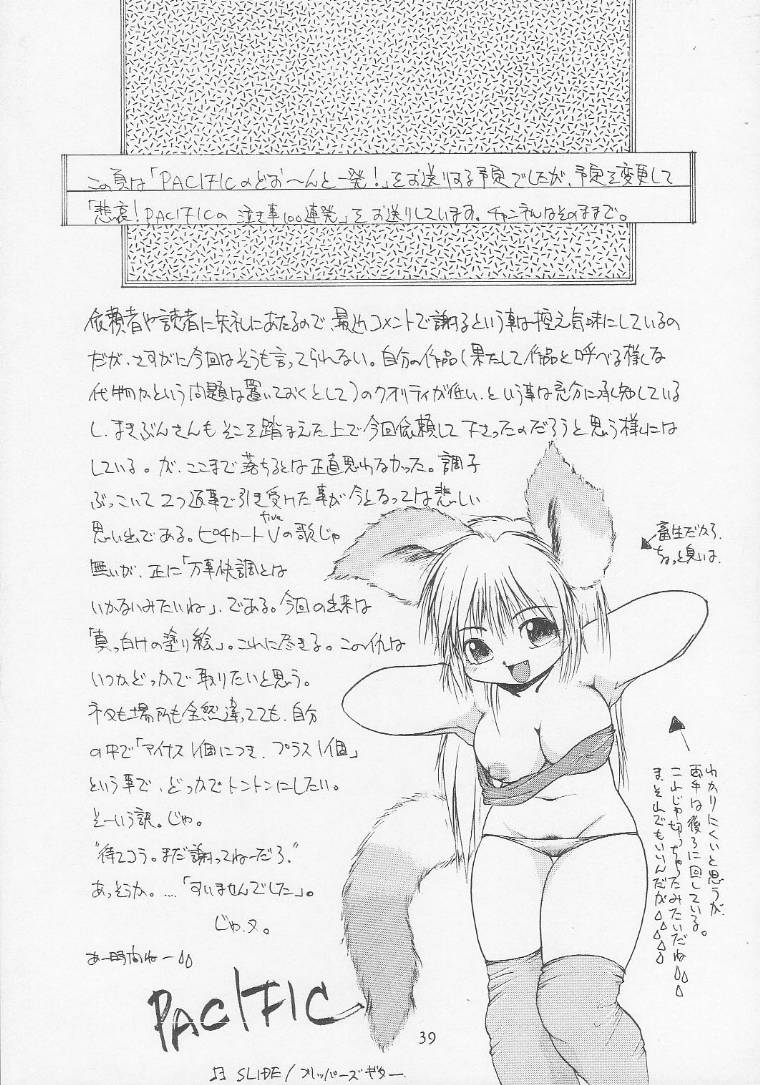 この頁は「PACIFICのどお〜んと一発！」をお送りする予定でしたが、予定を変更して
「悲哀！PACIFICの泣き事100連発」をお送りしています。チャンネルはそのままで。
依頼者や読者に失礼にあたるので、最近コメントで謝るという事は控え気味にしているの
だが、さすがに今回はそうも言ってられない。自分の作品（果たして作品と呼べる様な
代物かという問題は置いておくとして）のクオリティが低い、という事は充分に承知している
し、まきぶんさんもそこを踏まえた上で今回依頼して下さったのだろうと思う様には
している。が、ここまで落ちるとは正直思わなかった。調子
ぶっこいて2つ返事で引き受けた事が今となっては悲しい
思い出である。ピチカートV(five)の歌じゃ
無いが、正に「万事快調とは
いかないみたいね」、である。今回の出来は
「真っ白けの塗り絵」。これに尽きる。この仇は
いつかどっかで取りたいと思う。
ネタも場所も全然違ってても、自分
の中で「マイナス1個につき、プラス1個」
という事で、どっかでトントンにしたい。
そーいう訳。じゃ。
"待てコラ。まだ謝ってねーだろ"
あっそうか。……「すいませんでした」。
じゃ、又。
あー時間ねー
PACIFIC
畜生だから、
ちょっと臭いは、
わかりにくいと思うが、
両手は後ろに回している。
これじゃ切っちゃったみたいだね
ま、それでもいいんだが
39
♫ SLIDE / フリッパーズギター